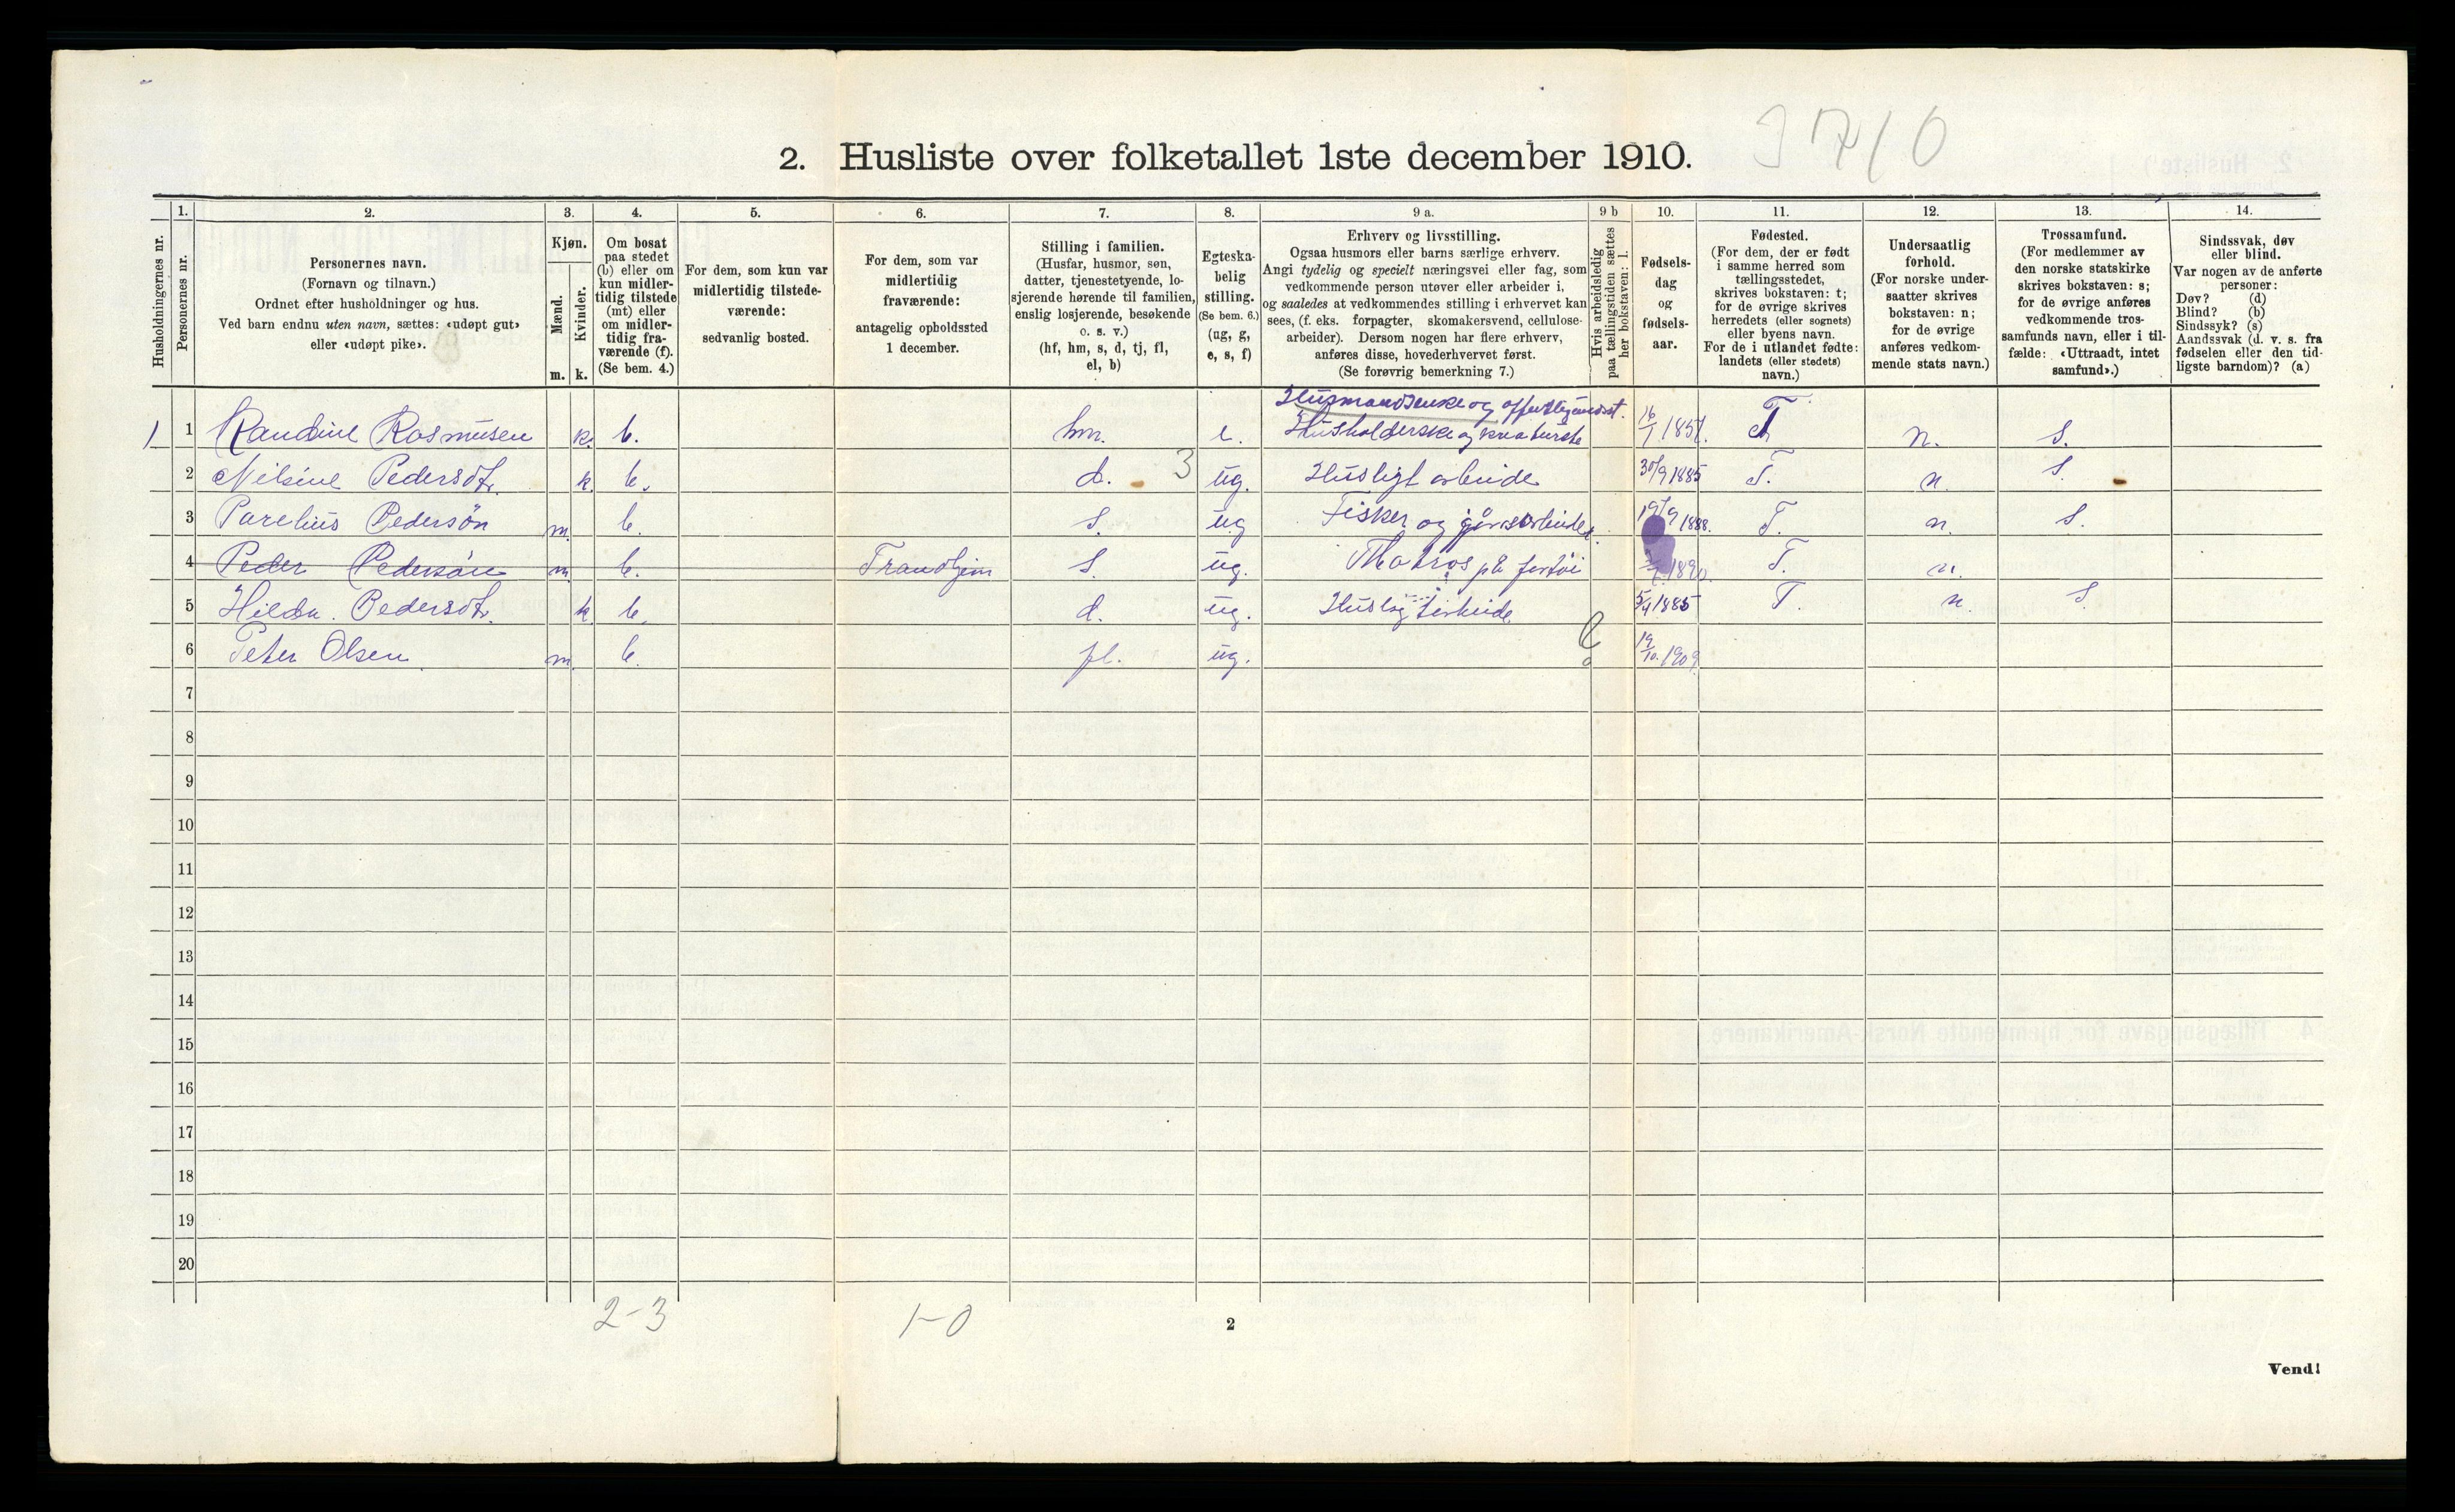 3710
2. Husliste over folketallet 1ste december 1910.
Husholdningernes nr.
1.
Personernes nr.
2.
Personernes navn.
(Fornavn og tilnavn.)
Ordnet efter husholdninger og hus.
Ved barn endnu uten navn, sættes: «udøpt gut»
eller «udøpt pike».
3.
Kjøn.
Mænd.
Kvinder.
m. k.
4.
Om bosat
paa stedet
(b) eller om
kun midler-
tidig tilstede
(mt) eller
om midler-
tidig fra-
værende (f).
(Se bem. 4.)
5.
For dem, som kun var
midlertidig tilstede-
værende:
sedvanlig bosted.
6.
For dem, som var
midlertidig
fraværende:
antagelig opholdssted
1 december.
7.
Stilling i familien.
(Husfar, husmor, søn,
datter, tjenestetyende, lo-
sjerende hørende til familien,
enslig losjerende, besøkende
o. s. v.)
(hf, hm, s, d, tj, fl,
el, b)
8.
Egteska-
belig
stilling.
(Se bem. 6.)
(ug, g,
e, s, f)
9 a.
Erhverv og livsstilling.
Ogsaa husmors eller barns særlige erhverv.
Angi tydelig og specielt næringsvei eller fag, som
vedkommende person utøver eller arbeider i,
og saaledes at vedkommendes stilling i erhvervet kan
sees, (f. eks. forpagter, skomakersvend, cellulose-
arbeider). Dersom nogen har flere erhverv,
anføres disse, hovederhvervet først.
(Se forøvrig bemerkning 7.)
9 b
Hvis arbeidsledig
paa tællingstiden sættes
her bokstaven: l.
10.
Fødsels-
dag
og
fødsels-
aar.
11.
Fødested.
(For dem, der er født
i samme herred som
tællingsstedet,
skrives bokstaven: t;
for de øvrige skrives
herredets (eller sognets)
eller byens navn.
For de i utlandet fødte:
landets (eller stedets)
navn.)
12.
Undersaatlig
forhold.
(For norske under-
saatter skrives
bokstaven: n;
for de øvrige
anføres vedkom-
mende stats navn.)
13.
Trossamfund.
(For medlemmer av
den norske statskirke
skrives bokstaven: s;
for de øvrige anføres
vedkommende tros-
samfunds navn, eller i til-
fælde: «Uttraadt, intet
samfund».)
14.
Sindssvak, døv
eller blind.
Var nogen av de anførte
personer:
Døv? (d)
Blind? (b)
Sindssyk? (s)
Aandssvak (d. v. s. fra
fødselen eller den tid-
ligste barndom)? (a)
1 1 Randine Rasmusen k. b. hm. e. Husholderske og T. n. S.
2 Nilsine Pedersdtr. k. b. d. 3 ug. Husligt arbeide 30/9 1885 T. n. S.
3 Parelius Pedersön m. b. s. ug Fisker og 19/9 1888. T. n. S.
4 Peder Pedersön m. b. Trondhjem s. ug. Matros på fartöi 1890. T. n.
5 Hilda Pedersdtr. k. b. d. ug. arbeide 5/4 1885 T. n. S.
6 Peter Olsen m. b. pl. ug. 19/10. 1909.
7
8
9
10
11
12
13
14
15
16
17
18
19
20
2-3 1-0
2
Vend!